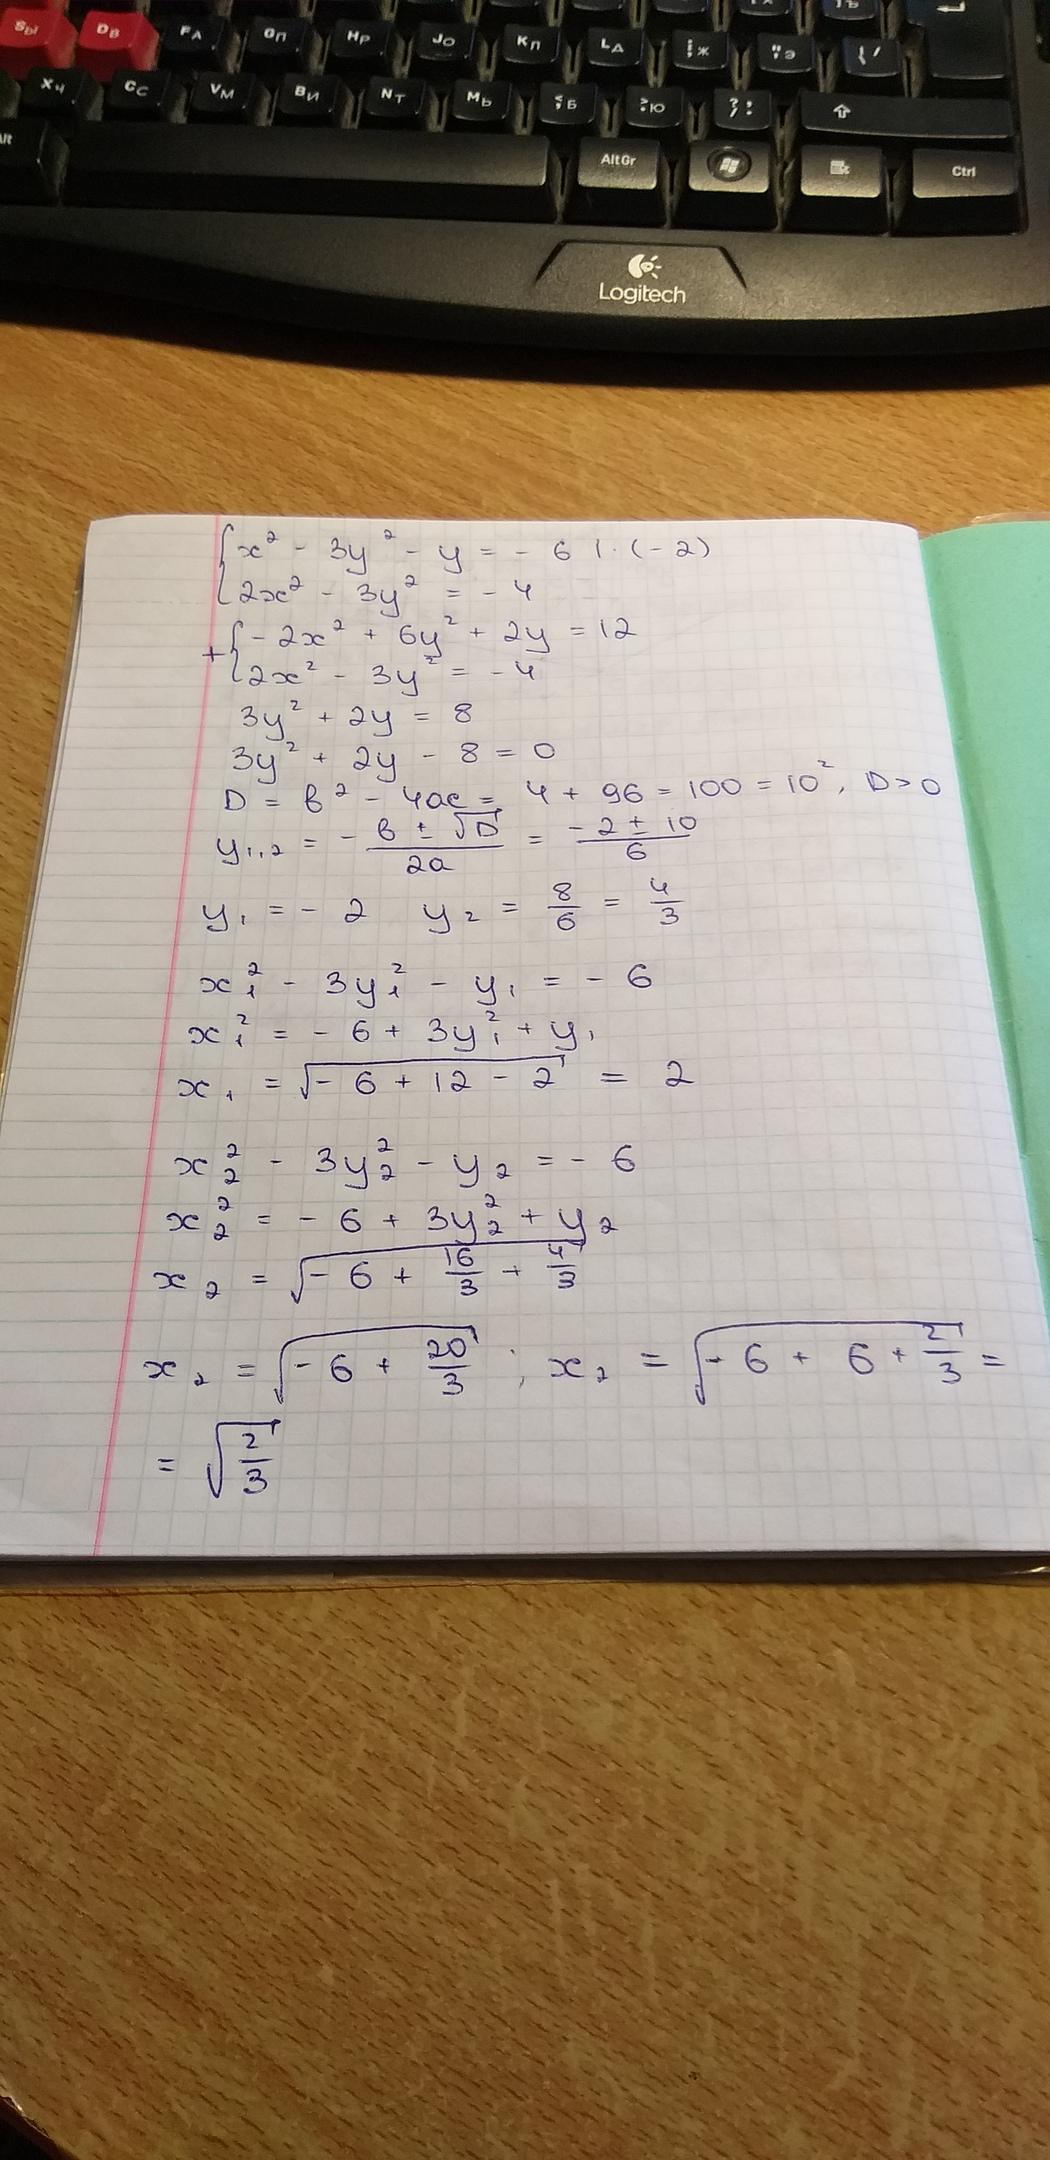 Sы Dв Fа Gп Hр Jо Kл Lд ;ж "э \/
Xч Cс Vм Bи Nт Mь <Б >Ю ?;
Alt AltGr Ctrl
Logitech
{x² - 3y² - y = - 6 | · (-2)
{2x² - 3y² = - 4
+{- 2x² + 6y² + 2y = 12
{2x² - 3y² = - 4
3y² + 2y = 8
3y² + 2y - 8 = 0
D = b² - 4ac = 4 + 96 = 100 = 10², D > 0
y₁,₂ = - b ± √D / 2a = -2 ± 10 / 6
y₁ = - 2 y₂ = 8/6 = 4/3
x₁² - 3y₁² - y₁ = - 6
x₁² = - 6 + 3y₁² + y₁
x₁ = √(- 6 + 12 - 2) = 2
x₂² - 3y₂² - y₂ = - 6
x₂² = - 6 + 3y₂² + y₂
x₂ = √(- 6 + 16/3 + 4/3)
x₂ = √(- 6 + 20/3) ; x₂ = √(- 6 + 6 + 2/3) =
= √(2/3)